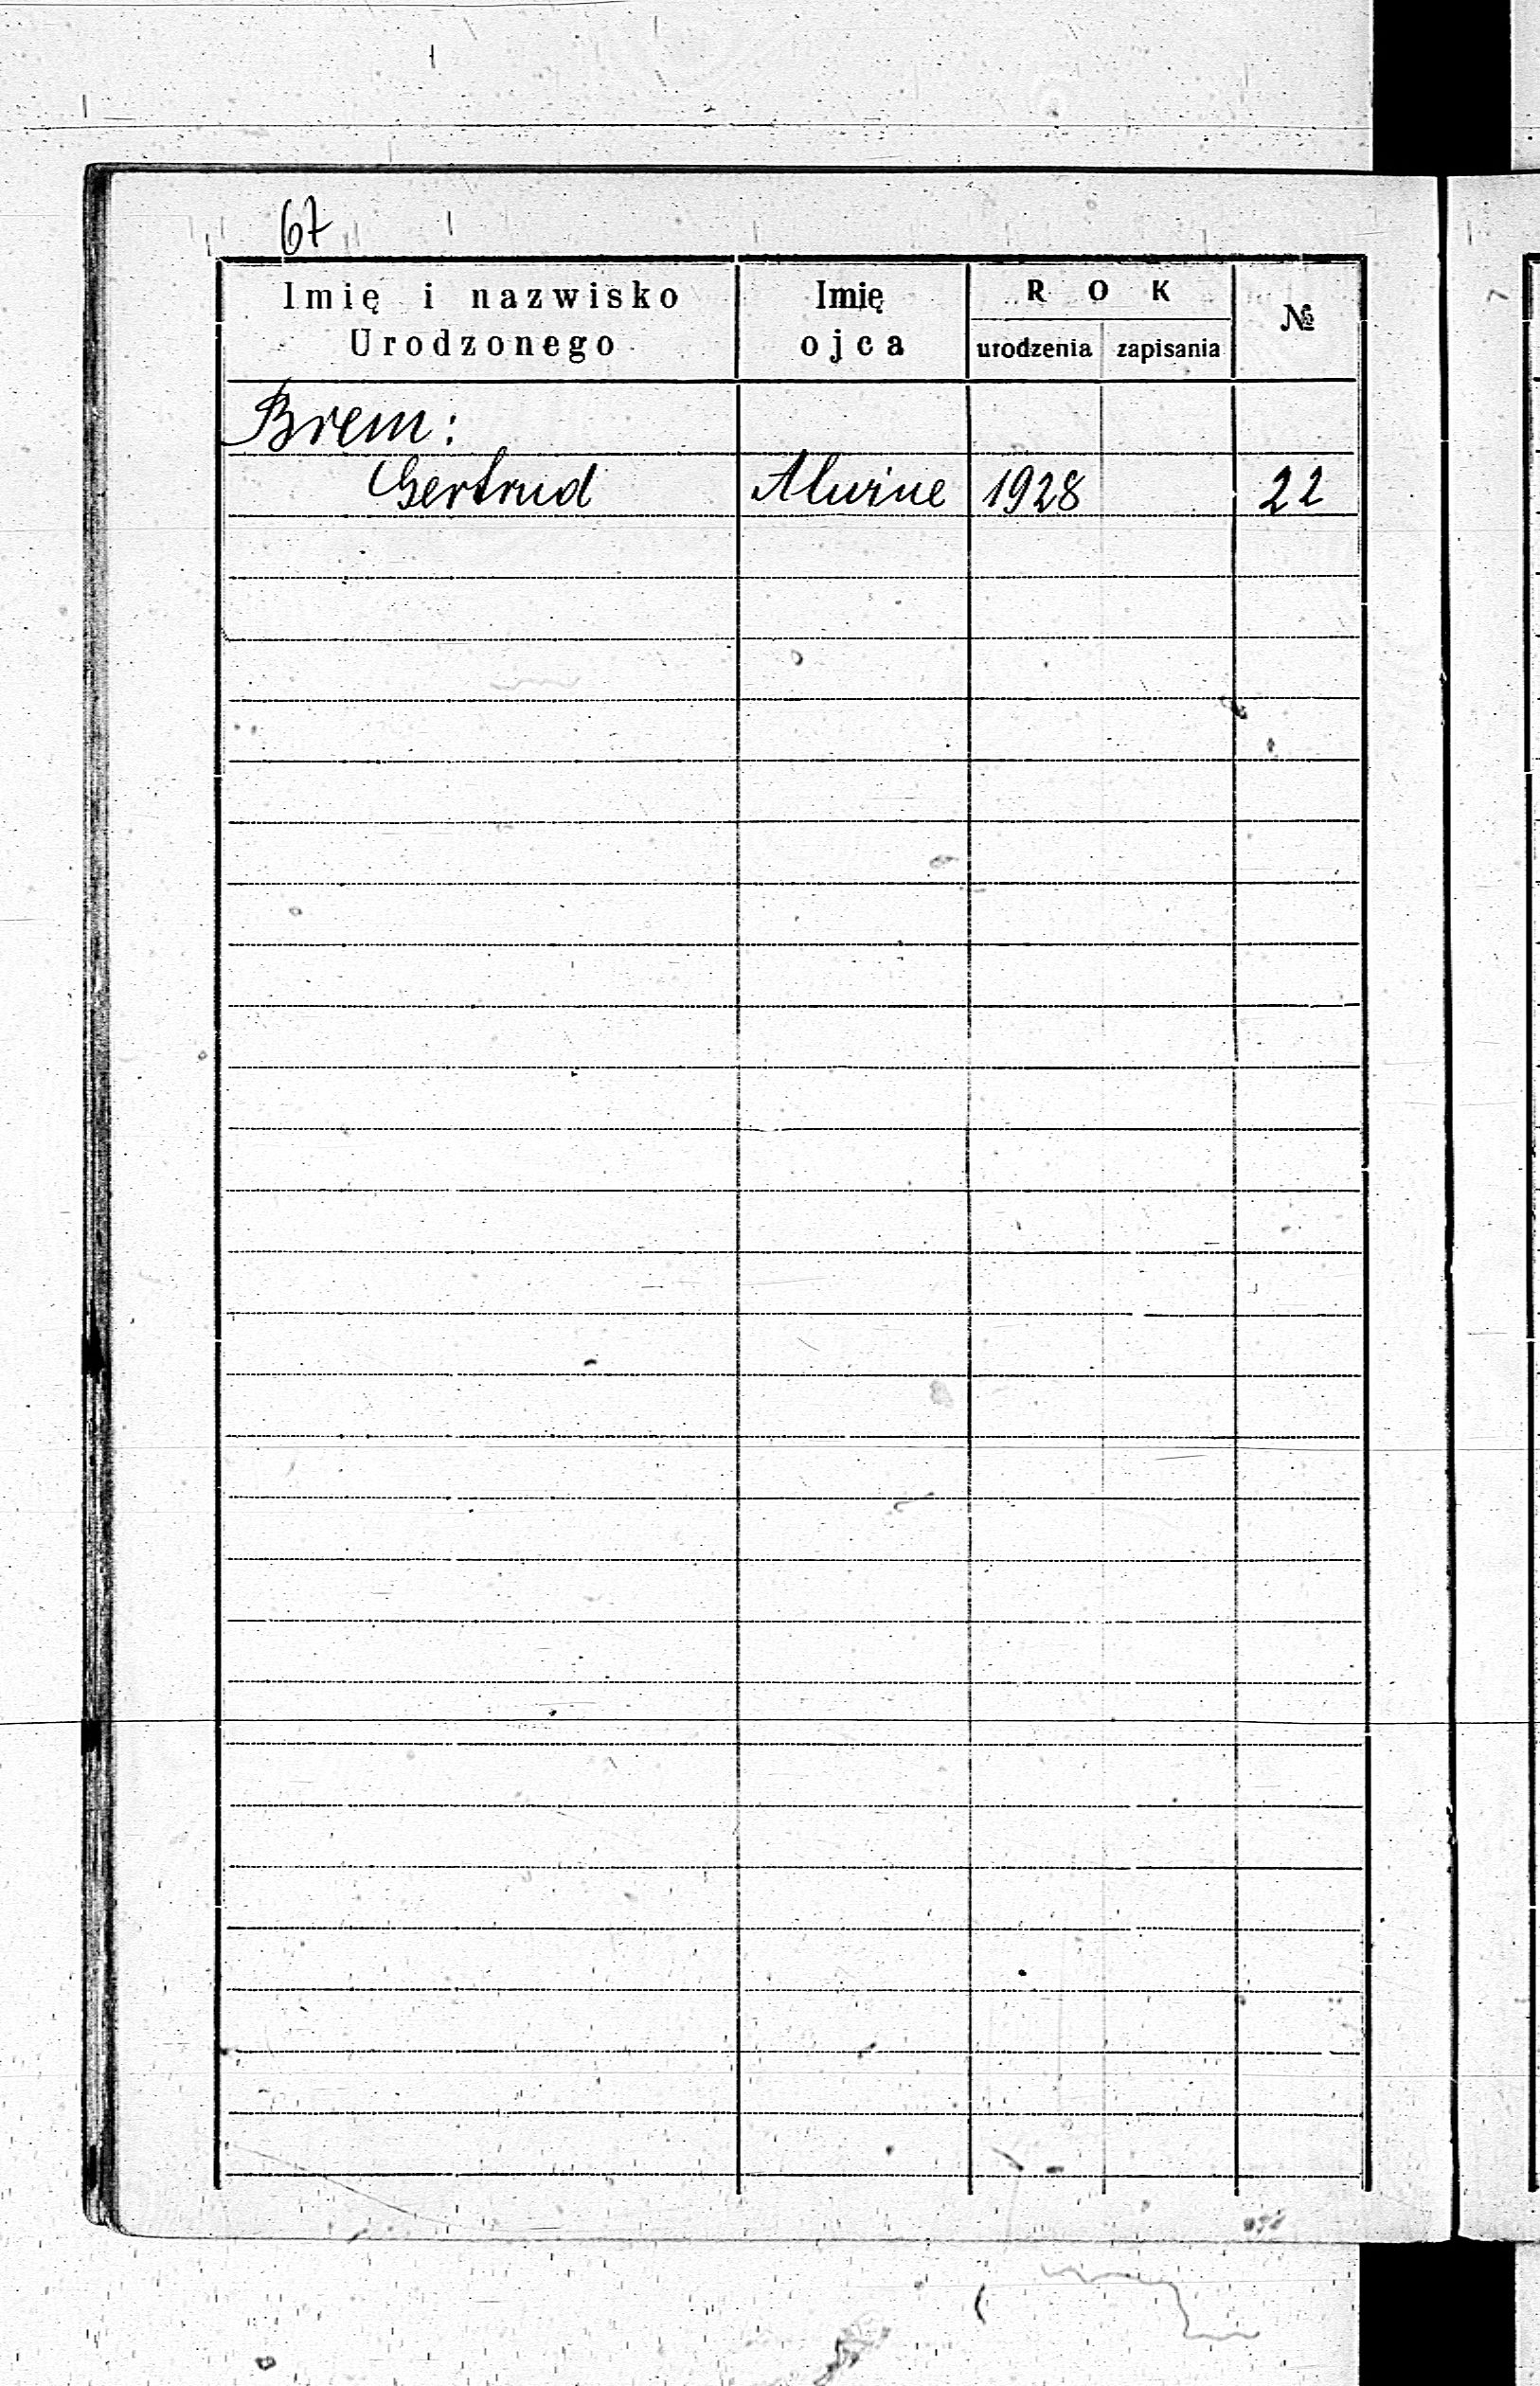 67
Imię i nazwisko Urodzonego
Imię ojca
ROK
urodzenia
zapisania
№
Brem:
Gertrud Alwine 1928 22